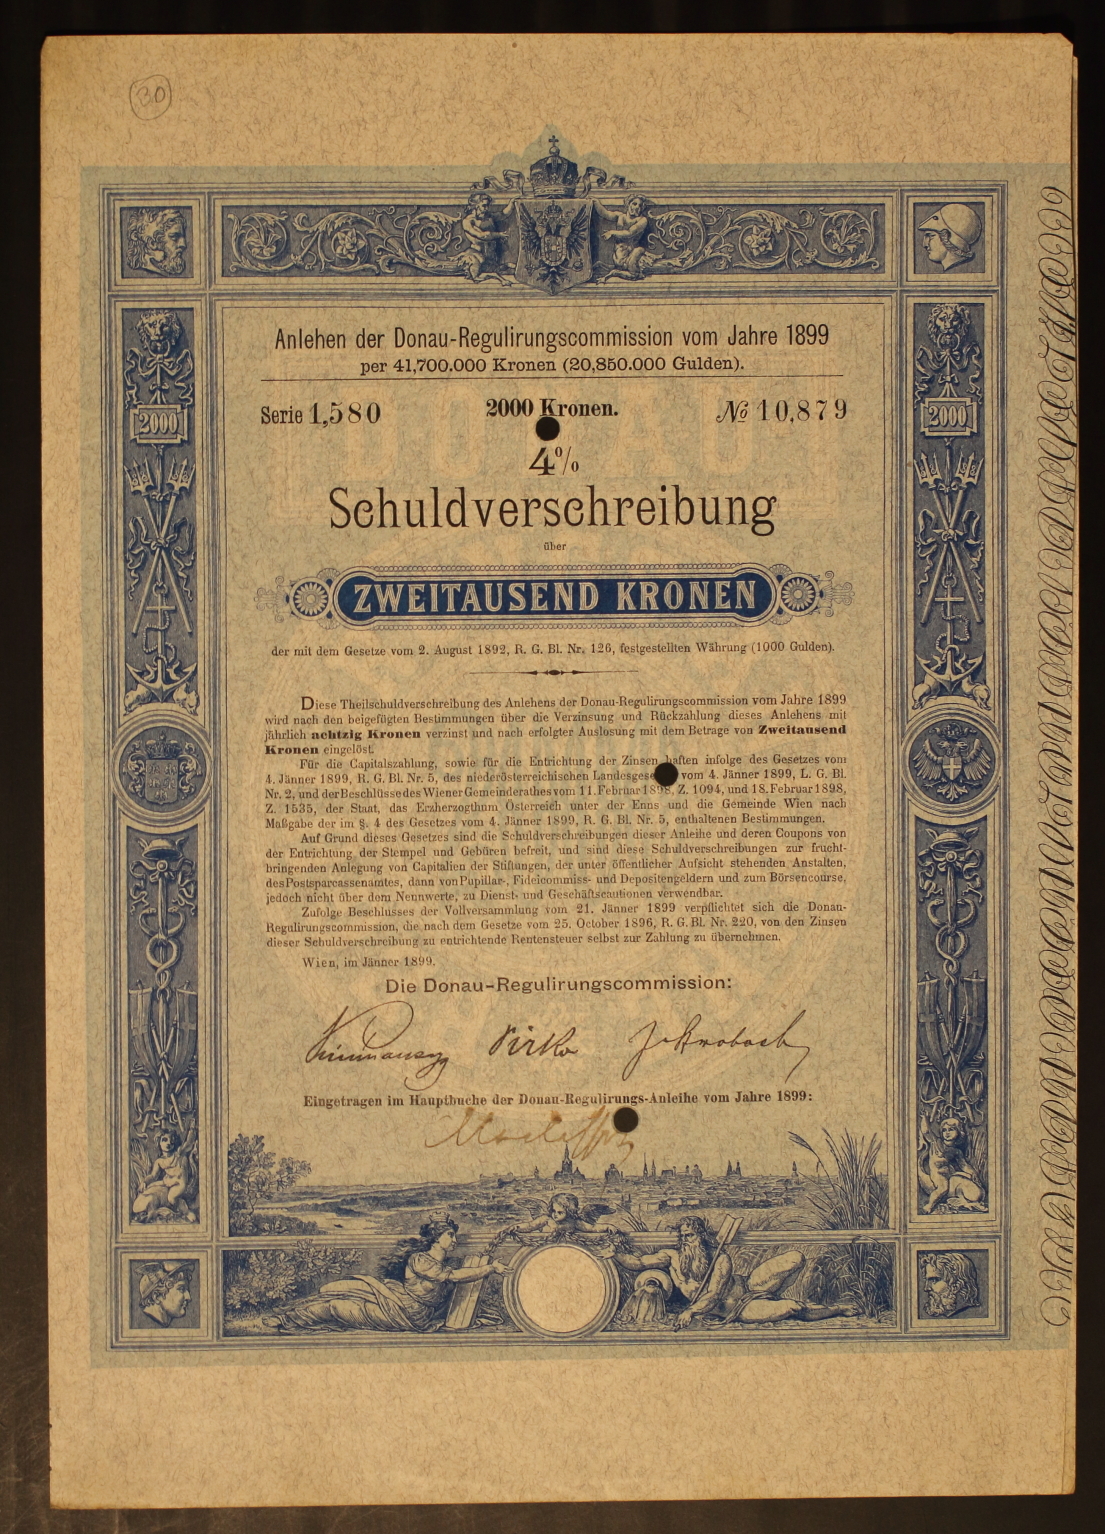 30
Anlehen der Donau-Regulirungscommission vom Jahre 1899
per 41,700.000 Kronen (20,850.000 Gulden).
Serie 1,580 2000 Kronen. № 10,879
4%
Schuldverschreibung
über
ZWEITAUSEND KRONEN
der mit dem Gesetze vom 2. August 1892, R. G. Bl. Nr. 126, festgestellten Währung (1000 Gulden).
Diese Theilschuldverschreibung des Anlehens der Donau-Regulirungscommission vom Jahre 1899
wird nach den beigefügten Bestimmungen über die Verzinsung und Rückzahlung dieses Anlehens mit
jährlich achtzig Kronen verzinst und nach erfolgter Auslosung mit dem Betrage von Zweitausend
Kronen eingelöst.
Für die Capitalszahlung, sowie für die Entrichtung der Zinsen haften infolge des Gesetzes vom
4. Jänner 1899, R. G. Bl. Nr. 5, des niederösterreichischen Landesgese vom 4. Jänner 1899, L. G. Bl.
Nr. 2, und der Beschlüsse des Wiener Gemeinderathes vom 11. Februar 1898, Z. 1094, und 18. Februar 1898,
Z. 1535, der Staat, das Erzherzogthum Österreich unter der Enns und die Gemeinde Wien nach
Maßgabe der im §. 4 des Gesetzes vom 4. Jänner 1899, R. G. Bl. Nr. 5, enthaltenen Bestimmungen.
Auf Grund dieses Gesetzes sind die Schuldverschreibungen dieser Anleihe und deren Coupons von
der Entrichtung der Stempel und Gebüren befreit, und sind diese Schuldverschreibungen zur frucht-
bringenden Anlegung von Capitalien der Stiftungen, der unter öffentlicher Aufsicht stehenden Anstalten,
des Postsparcassenamtes, dann von Pupillar-, Fideicommiss- und Depositengeldern und zum Börsencourse,
jedoch nicht über dem Nennwerte, zu Dienst- und Geschäftscautionen verwendbar.
Zufolge Beschlusses der Vollversammlung vom 21. Jänner 1899 verpflichtet sich die Donau-
Regulirungscommission, die nach dem Gesetze vom 25. October 1896, R. G. Bl. Nr. 220, von den Zinsen
dieser Schuldverschreibung zu entrichtende Rentensteuer selbst zur Zahlung zu übernehmen.
Wien, im Jänner 1899.
Die Donau-Regulirungscommission:
Eingetragen im Hauptbuche der Donau-Regulirungs-Anleihe vom Jahre 1899:
2000
2000